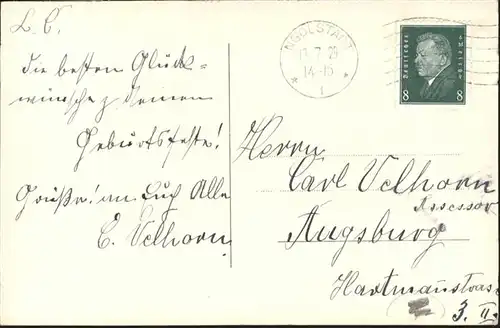 L. C.
die besten Glück-
wünsche z. deinem
Geburtsfeste!
Grüße! an Euch Alle
C. Velhorn.
INGOLSTADT
7 29
14-15
1
Deutsches Reich
8 8
Herrn
Carl Velhorn
Assessor
Augsburg
Hartmannstrasse
3. II